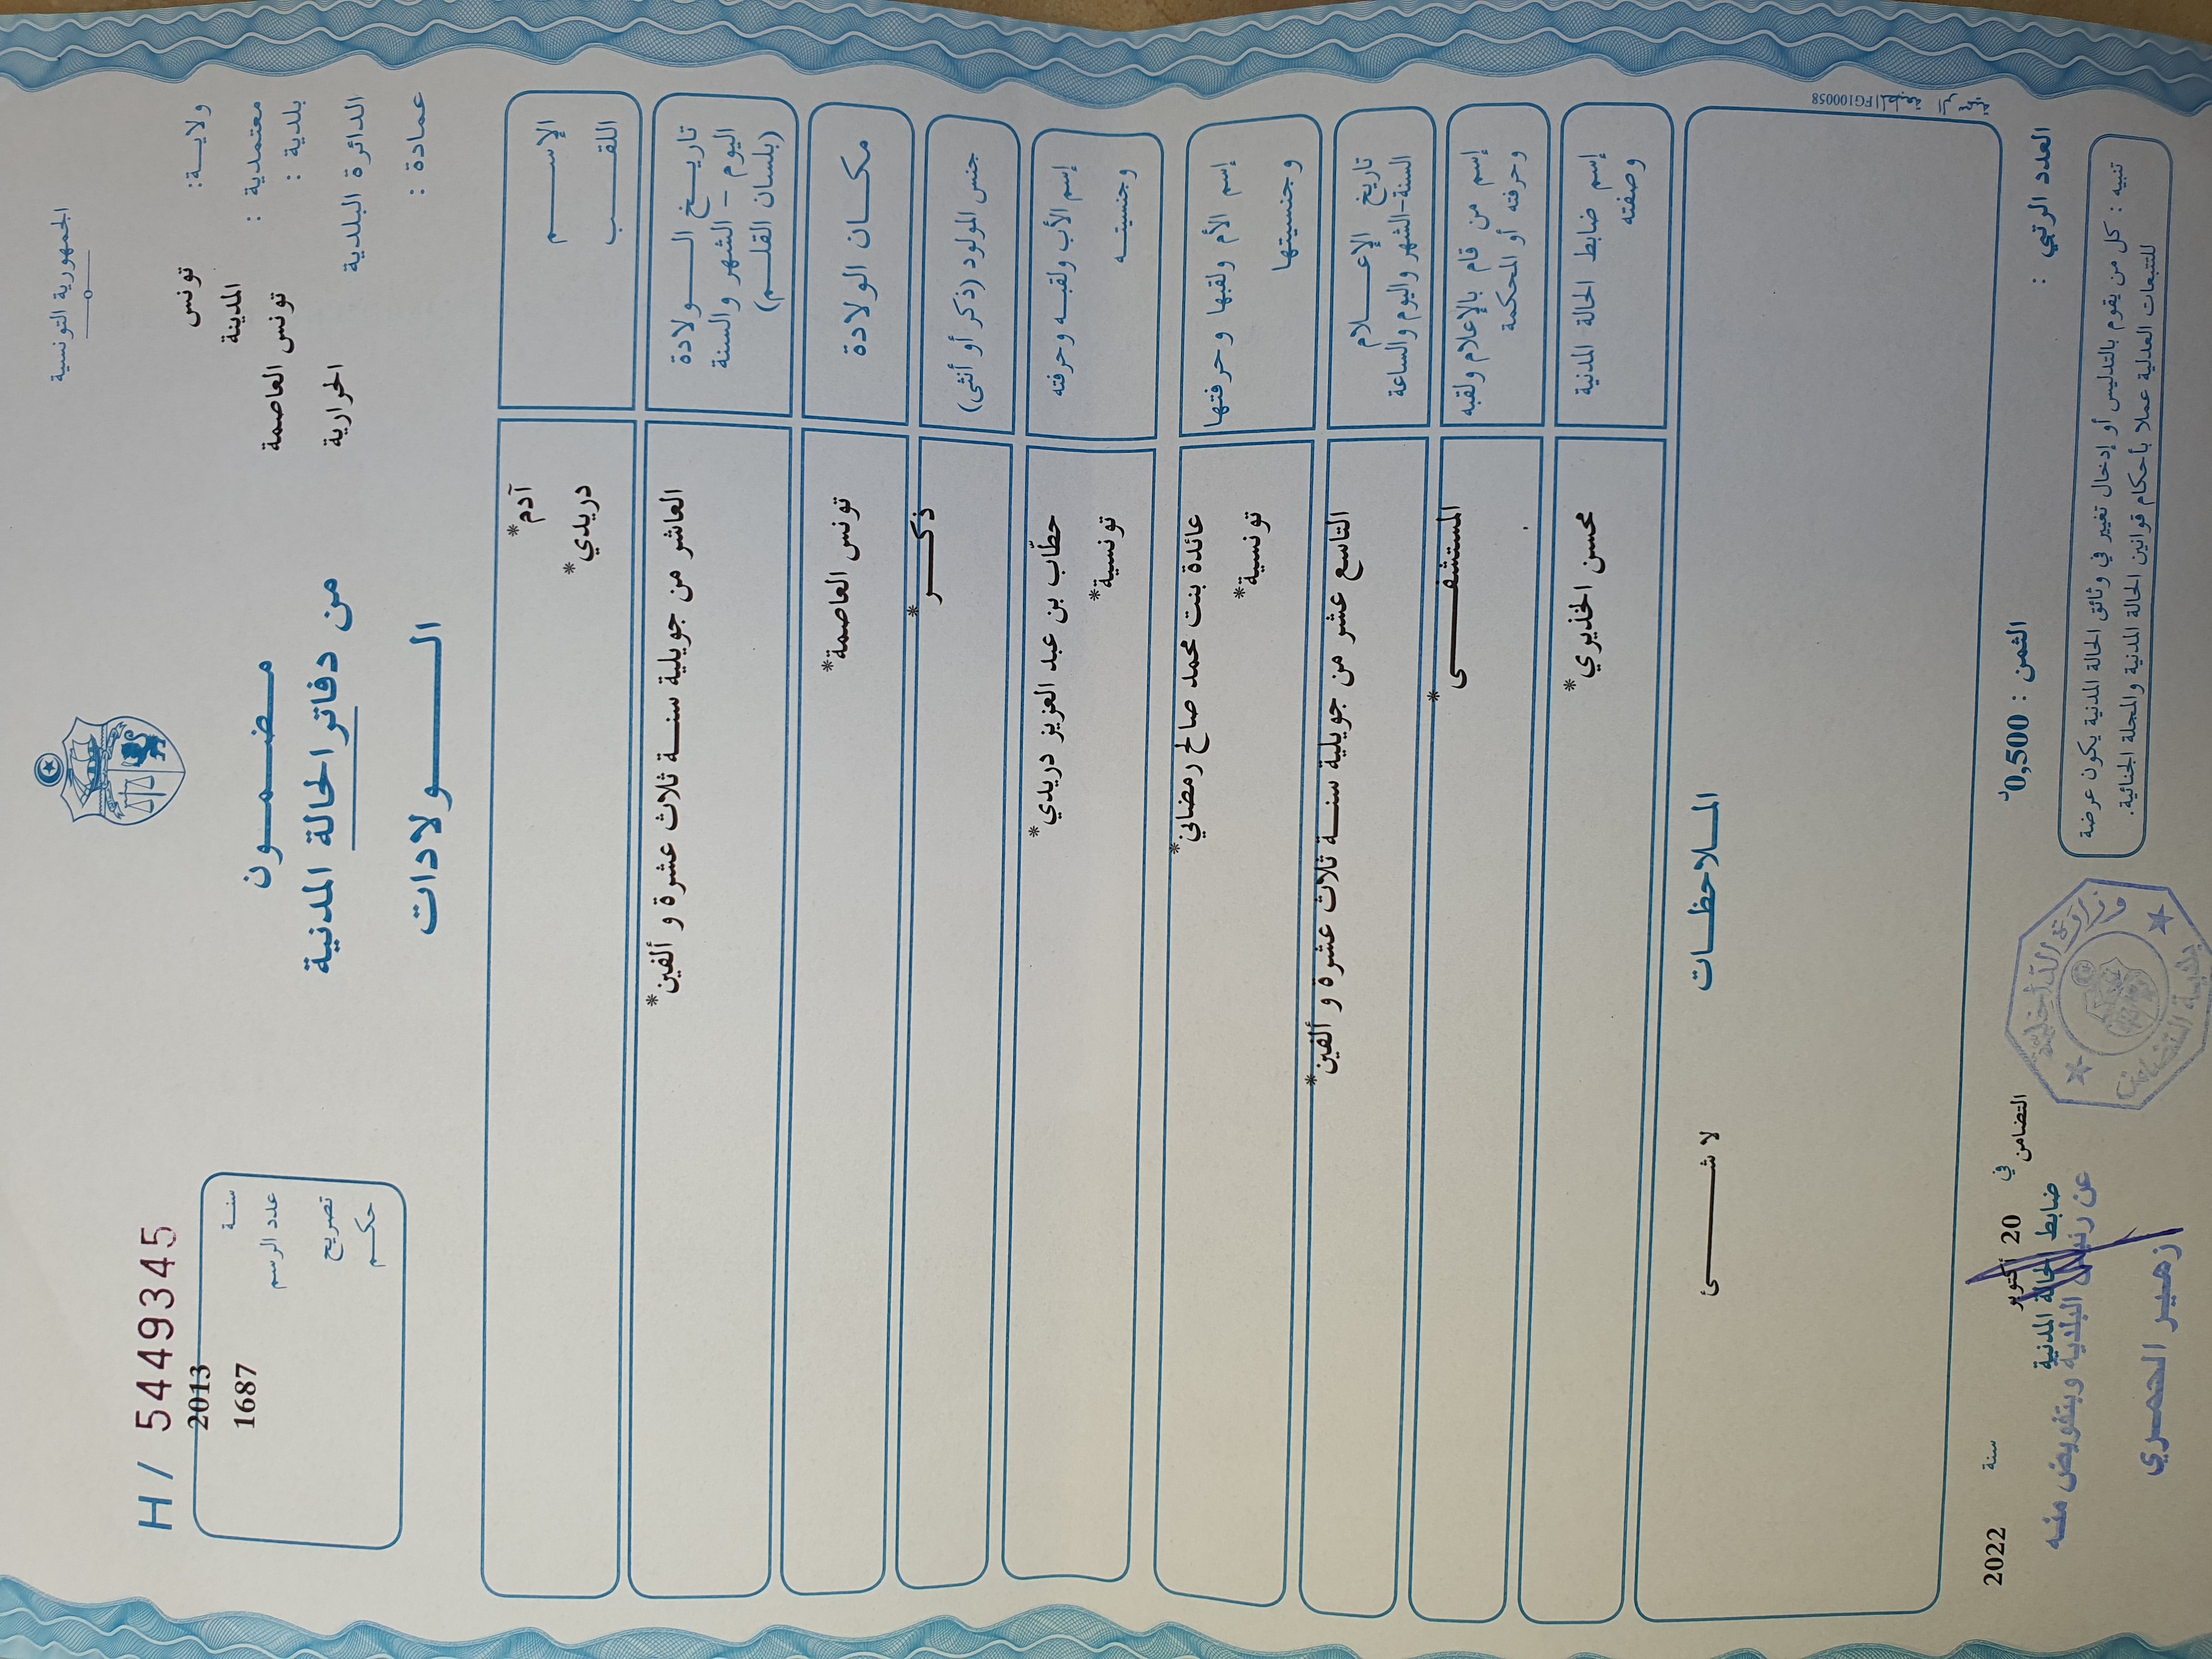 الجمهورية التونسية
ولايــة: تونس
معتمدية : المدينة
بلدية : تونس العاصمة
الدائرة البلدية الحرارية
عمادة :
مـضـمـــون
من دفاتر الحالة المدنية
الـــــولادات
H / 5449345
سنــة 2013
عدد الرسم 1687
تصريح
حكــم
الإســــــم آدم*
اللقـــــب دريدي*
تاريـــخ الـــــولادة
اليوم - الشهر والسنة
(بلسان القلــم)
العاشر من جويلية سنــــة ثلاث عشرة و ألفين*
مكـــان الولادة تونس العاصمة*
جنس المولود (ذكر أو أنثى) ذكــــــر*
إسم الأب ولقبــه وحرفته حطّاب بن عبد العزيز دريدي*
وجنسيتــه تونسية*
إسم الأم ولقبها وحرفتها عائدة بنت محمد صالح رمضاني*
وجنسيتها تونسية*
تاريخ الإعـــــلام
السنة-الشهر واليوم والساعة
التاسع عشر من جويلية سنــــة ثلاث عشرة و ألفين*
إسم من قام بالإعلام ولقبه
وحرفته أو المحكمة
المستشفــــــــى*
إسم ضابط الحالة المدنية
وصفته
محسن الخذيري*
المــلاحظــات
لا شــــــــئ
FG100058
العدد الرتبي :
الثمن : 0,500د
التضامن في 20 أكتوبر سنة 2022
ضابط الحالة المدنية
تنبيه : كل من يقوم بالتدليس أو إدخال تغيير في وثائق الحالة المدنية يكون عرضة
للتتبعات العدلية عملا بأحكام قوانين الحالة المدنية والمجلة الجنائية.
وزارة الداخلية
بلدية التضامن
عن رئيس البلدية وبتفويض منه
زهير الحمري